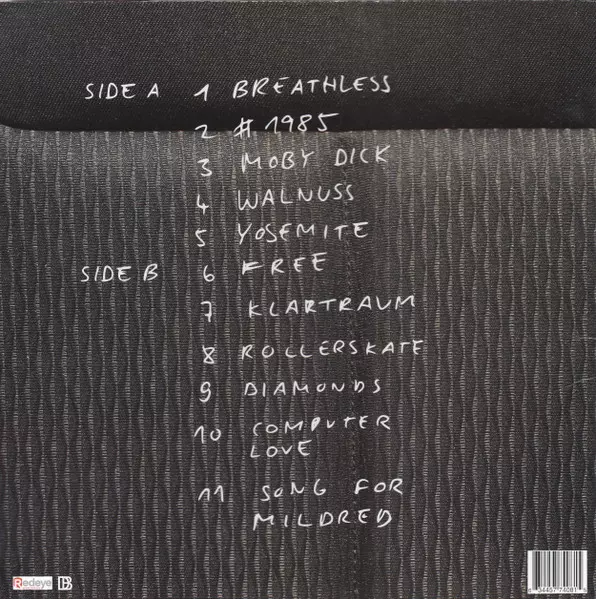 SIDE A 1 BREATHLESS
2 #1985
3 MOBY DICK
4 WALNUSS
5 YOSEMITE
SIDE B 6 FREE
7 KLARTRAUM
8 ROLLERSKATE
9 DIAMONDS
10 COMPUTER
LOVE
11 SONG FOR
MILDRED
Redeye